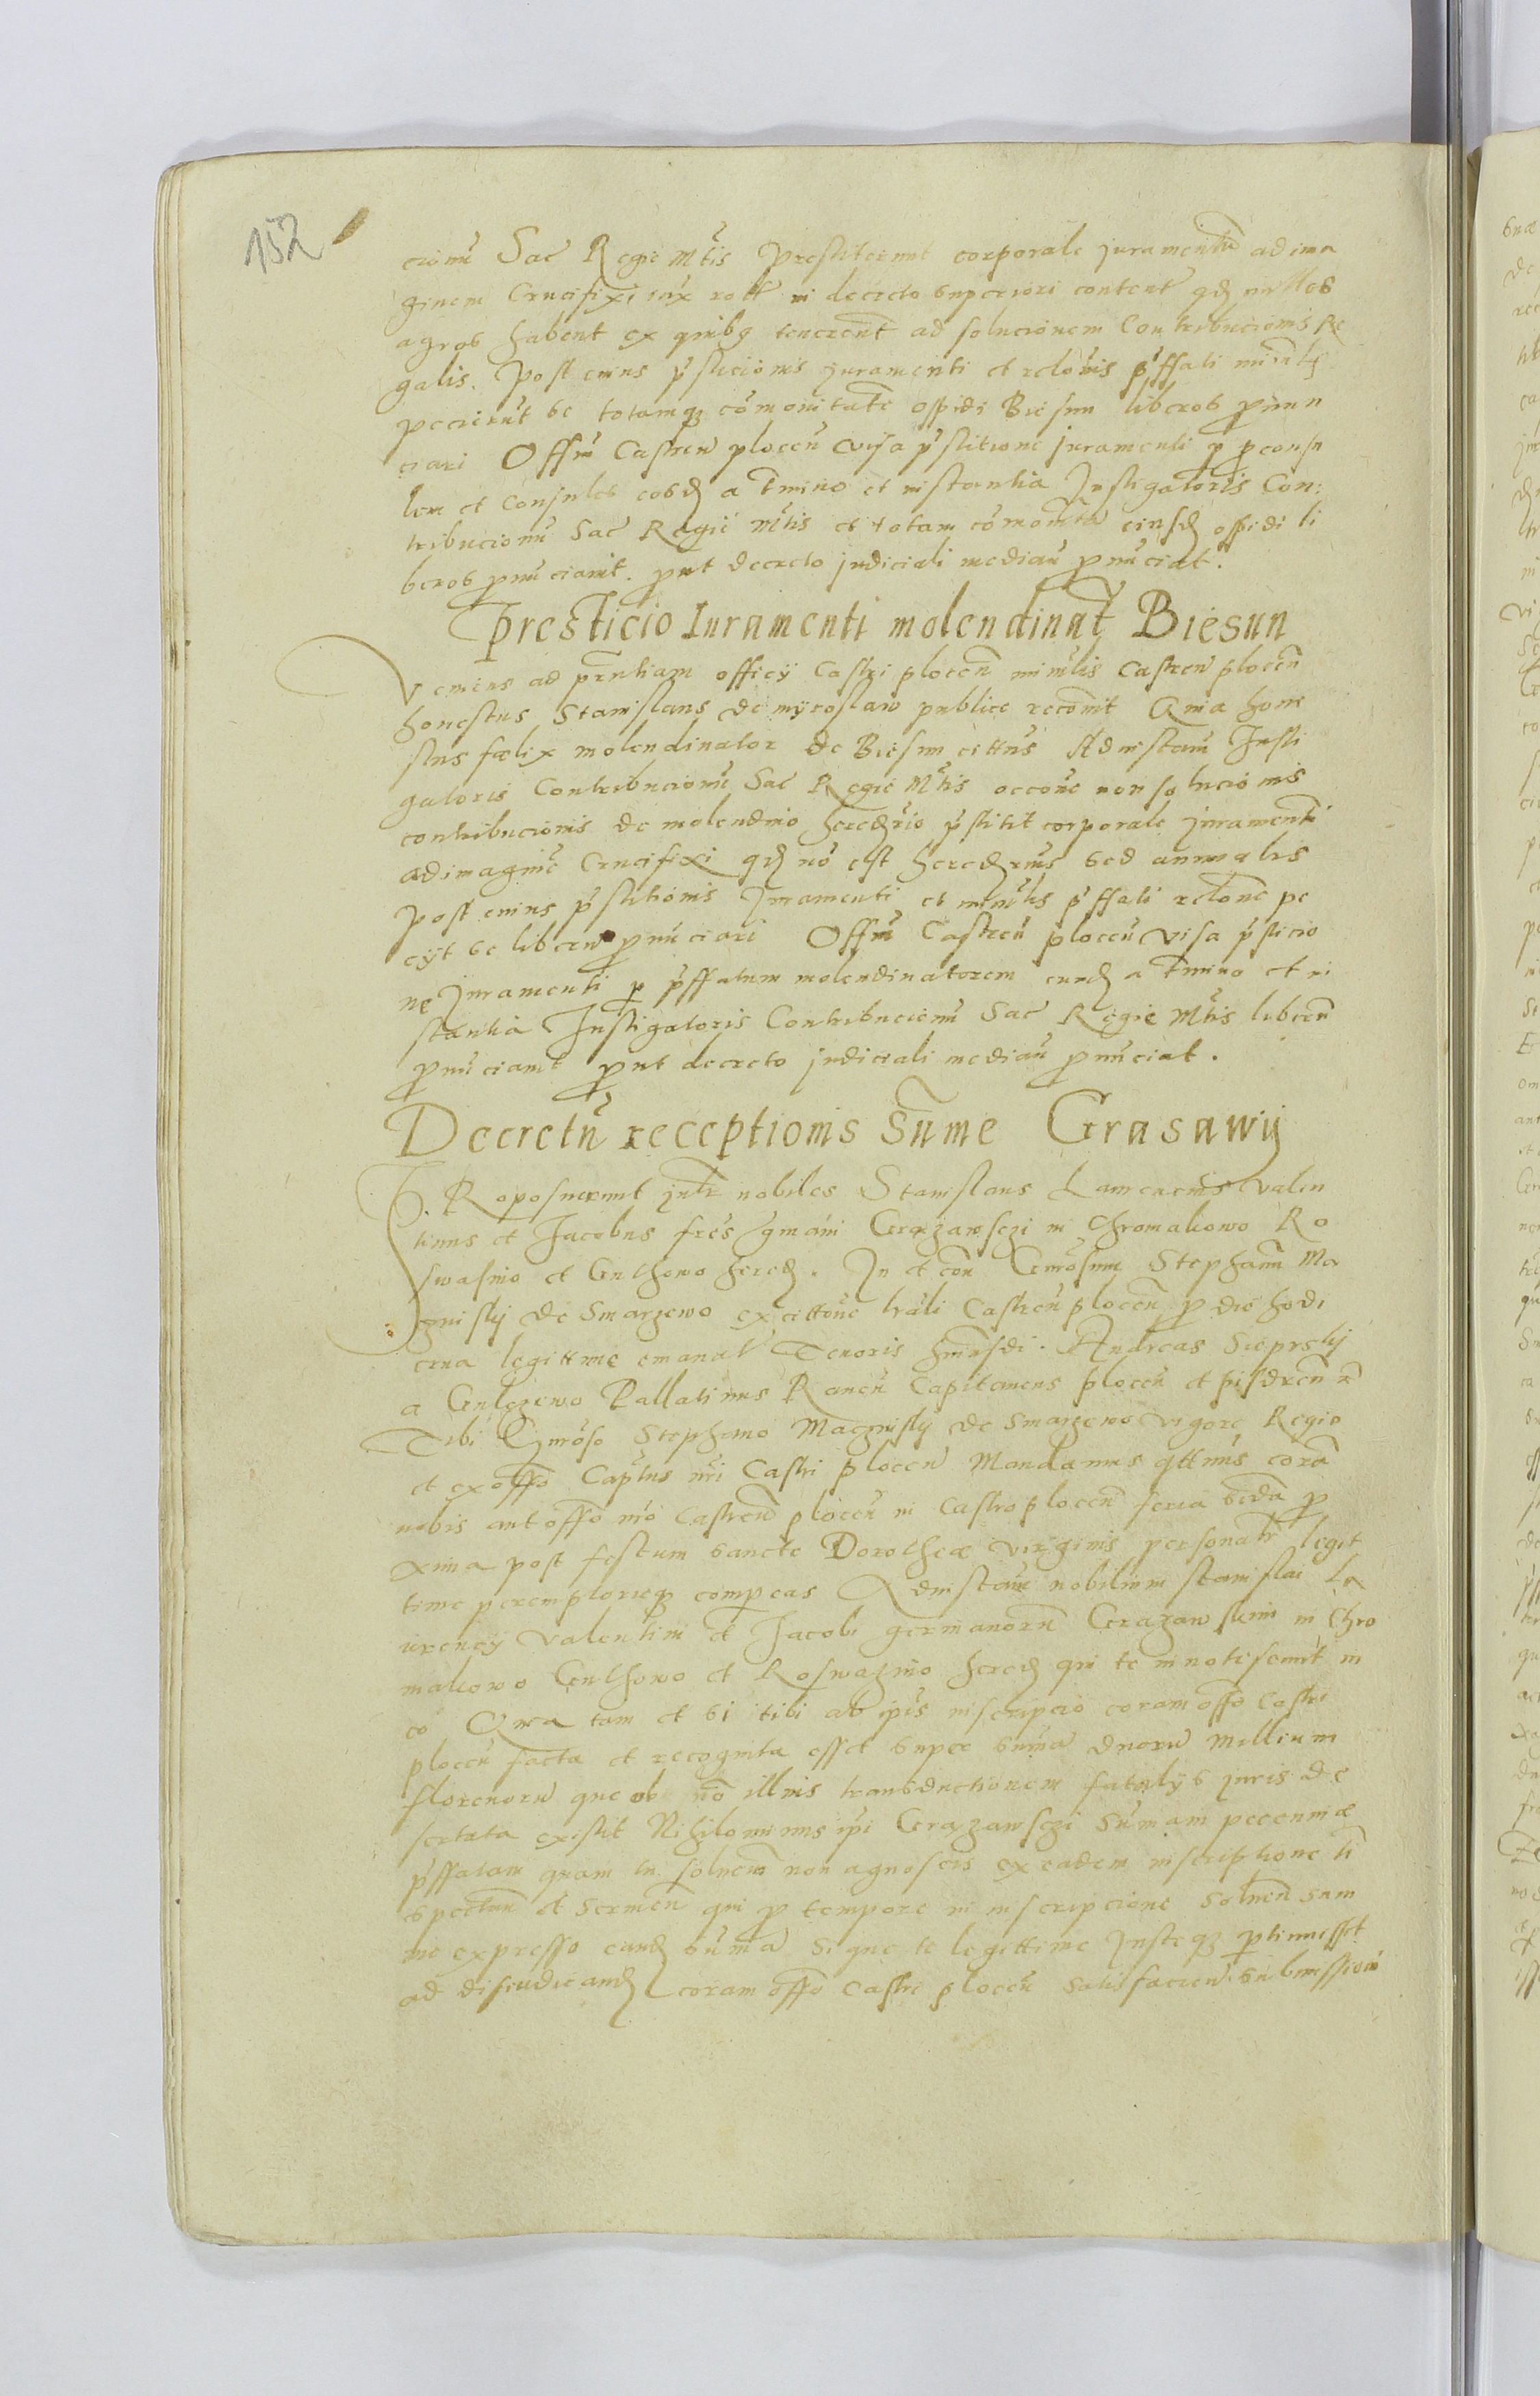 152
cionũ Sac Regie Mtis prestiterunt corporale juramentũ ad ima
ginem Crucifixi iux rott in decreto superiori content qd nullos
agros habent ex quibq tenerent ad solucionem Contribucionis Re
galis. Post cuius pstucionis juramenti et relonis pffati minrlis
pecierũt se totamqz cõmonitatẽ oppidi Biesun liberos pnun
ciari Offm Castreñ ploceñ visa pstitione juramenti p proconsu
lem et Consules eosd a tmino et instantia Instigatoris Con:
tribucionũ Sac Regie Mtis et totam cõmonitã eiusd oppidi li
beros pnũciavit. put decreto judiciali mediañ pnũciat.
Presticio Iuramenti molendinat Biesun
Veniens ad pñtiam officÿ Castri ploceñ minrlis Castreñ ploceñ
honestus Stanislaus de mÿroslaw publice recõuit Quia hone
stus felix molendinator de Biesun cittus Ad instañ Insti
gatoris Contribucionũ Sac Regie Mtis occõne non solucionis
contribucionis de molendino heredrio pstitit corporale juramentũ
ad imaginẽ Crucifixi qd nõ est heredrius sed annualis
Post cuius pstitionis Juramenti et minrlis pffati relone pe
cÿt se liberũ pnũciari Offm Castreñ ploceñ visa psticio
ne Juramenti p pffatum molendinatorem eund a tmino et in
stantia Instigatoris Contribucionũ Sac Regie Mtis liberũ
pnũciavit put decreto judiciali mediañ pnũciat.
Decretũ receptionis sũme Grasawij
Proposuerunt jnfr nobiles Stanislaus Laurencius Valen
tinus et Jacobus fres gmani Grazawsczi in Chromakowo Ro
swasino et Gulhowo hered. In et con Gnrosum Stephanũ Ma
gniskÿ de Smarzewo ex cittone trali Castreñ ploceñ p die hodi
erna legittime emanat Tenoris hmusdi. Andreas Sieprskÿ
a Gulczewo Pallatinus Raueñ Capitaneus ploceñ et pisdreñ
Tibi Gnroso Stephano Magniskÿ de Smarzewo vigore Regio
et ex offo Captus nri Castri ploceñ Mandamus qttnus corã
nobis aut offo nro Castreñ ploceñ in Castro ploceñ feria scda p
xima post festum sancte Dorothee virginis personalr legit
time peremptorieqz compeas Ad instañ nobilium Stanislai La
urencÿ Valentini et Jacobi germanorũ Grazawskim in Chro
makowo Gulhowo et Roswazino hered qui te in notifeunt in
eo Quia tam et si tibi ab ipis inscripcio coram offo Castri
ploceñ facta et recognita esset super suma duoru Millium
florenoru que ob nõ illius transductionem fatalÿs juris de
sertata existit Nihilominus ipi Grazawsczi Sũmam pecunie
pffatam quam tu solueñ non agnoscis ex eadem inscriptione ti
spectañ et serueñ qui p tempore in inscripcione solueñ sum
me expresso eand sũma si que te legittime Justeqz ptinuisset
ad disiudicand coram offo Castri ploceñ satisfacieñ submissioñ